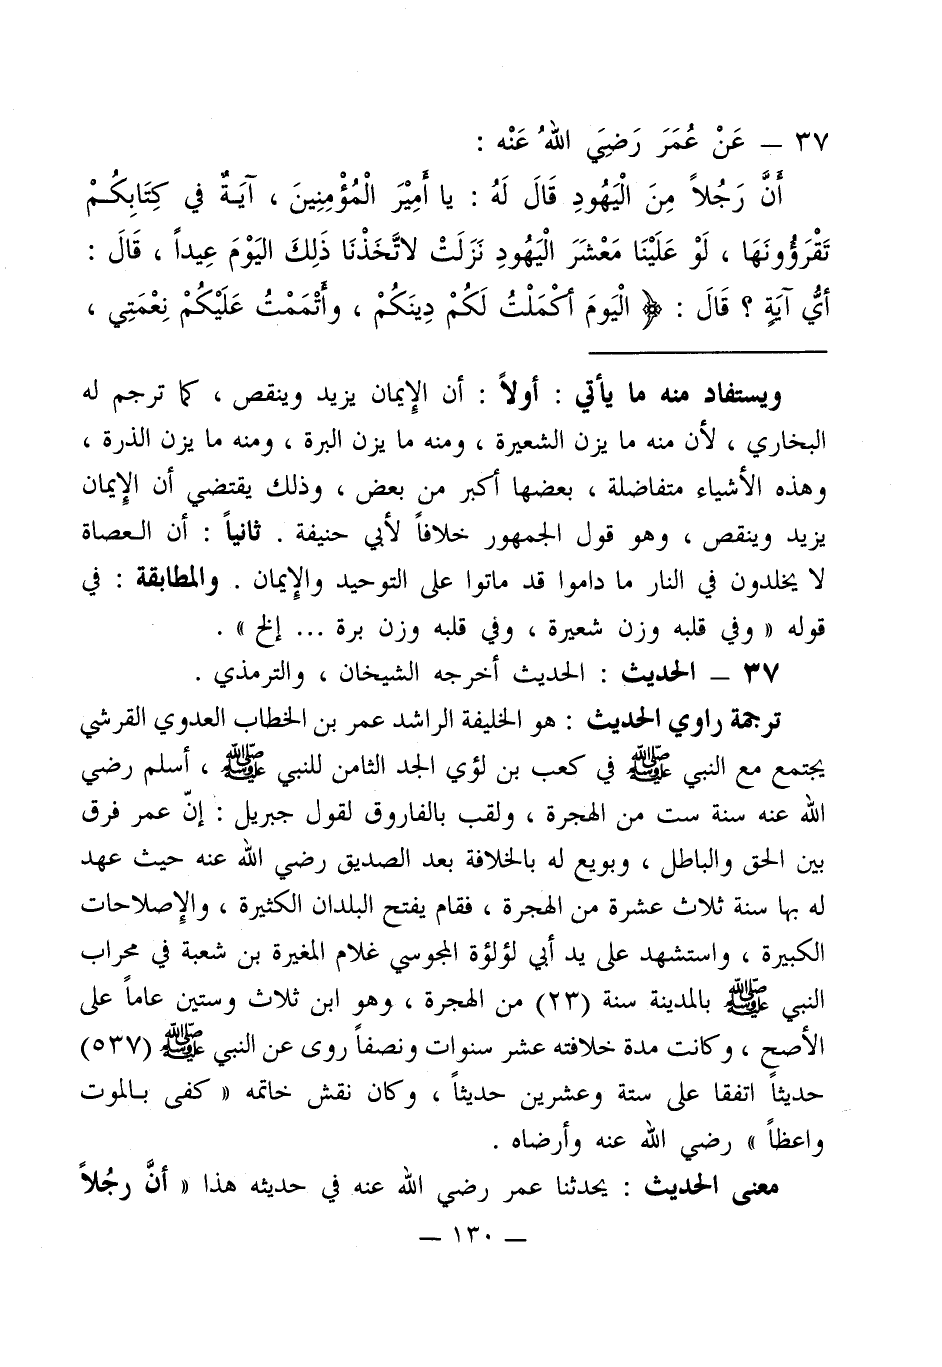 ٣٧ ــ عَنْ عُمَرَ رَضِيَ اللهُ عَنْه :
أَنَّ رَجُلاً مِنَ الْيَهُودِ قَالَ لَهُ : يا أَمِيْرَ الْمُؤْمِنِينَ ، آيَةٌ في كِتَابِكُمْ
تَقْرَؤُونَهَا ، لَوْ عَلَيْنَا مَعْشَرَ الْيَهُودِ نَزَلَتْ لاتَّخَذْنَا ذَلِكَ اليَوْمَ عِيداً ، قَالَ :
أيُّ آيَةٍ ؟ قَالَ : ﴿ الْيَومَ أكْمَلْتُ لَكُمْ دِينَكُمْ ، وأَتْمَمْتُ عَلَيْكُمْ نِعْمَتِي ،
ويستفاد منه ما يأتي : أولاً : أن الإِيمان يزيد وينقص ، كما ترجم له
البخاري ، لأن منه ما يزن الشعيرة ، ومنه ما يزن البرة ، ومنه ما يزن الذرة ،
وهذه الأشياء متفاضلة ، بعضها أكبر من بعض ، وذلك يقتضي أن الإِيمان
يزيد وينقص ، وهو قول الجمهور خلافاً لأبي حنيفة . ثانياً : أن العصاة
لا يخلدون في النار ما داموا قد ماتوا على التوحيد والإِيمان . والمطابقة : في
قوله « وفي قلبه وزن شعيرة ، وفي قلبه وزن برة ... إلخ » .
٣٧ ــ الحديث : الحديث أخرجه الشيخان ، والترمذي .
ترجمة راوي الحديث : هو الخليفة الراشد عمر بن الخطاب العدوي القرشي
يجتمع مع النبي ﷺ في كعب بن لؤي الجد الثامن للنبي ﷺ ، أسلم رضي
الله عنه سنة ست من الهجرة ، ولقب بالفاروق لقول جبريل : إنّ عمر فرق
بين الحق والباطل ، وبويع له بالخلافة بعد الصديق رضي الله عنه حيث عهد
له بها سنة ثلاث عشرة من الهجرة ، فقام يفتح البلدان الكثيرة ، والإِصلاحات
الكبيرة ، واستشهد على يد أبي لؤلؤة المجوسي غلام المغيرة بن شعبة في محراب
النبي ﷺ بالمدينة سنة (٢٣) من الهجرة ، وهو ابن ثلاث وستين عاماً على
الأصح ، وكانت مدة خلافته عشر سنوات ونصفاً روى عن النبي ﷺ (٥٣٧)
حديثاً اتفقا على ستة وعشرين حديثاً ، وكان نقش خاتمه « كفى بالموت
واعظاً » رضي الله عنه وأرضاه .
معنى الحديث : يحدثنا عمر رضي الله عنه في حديثه هذا « أنَّ رجُلاً
ــ ١٣٠ ــ